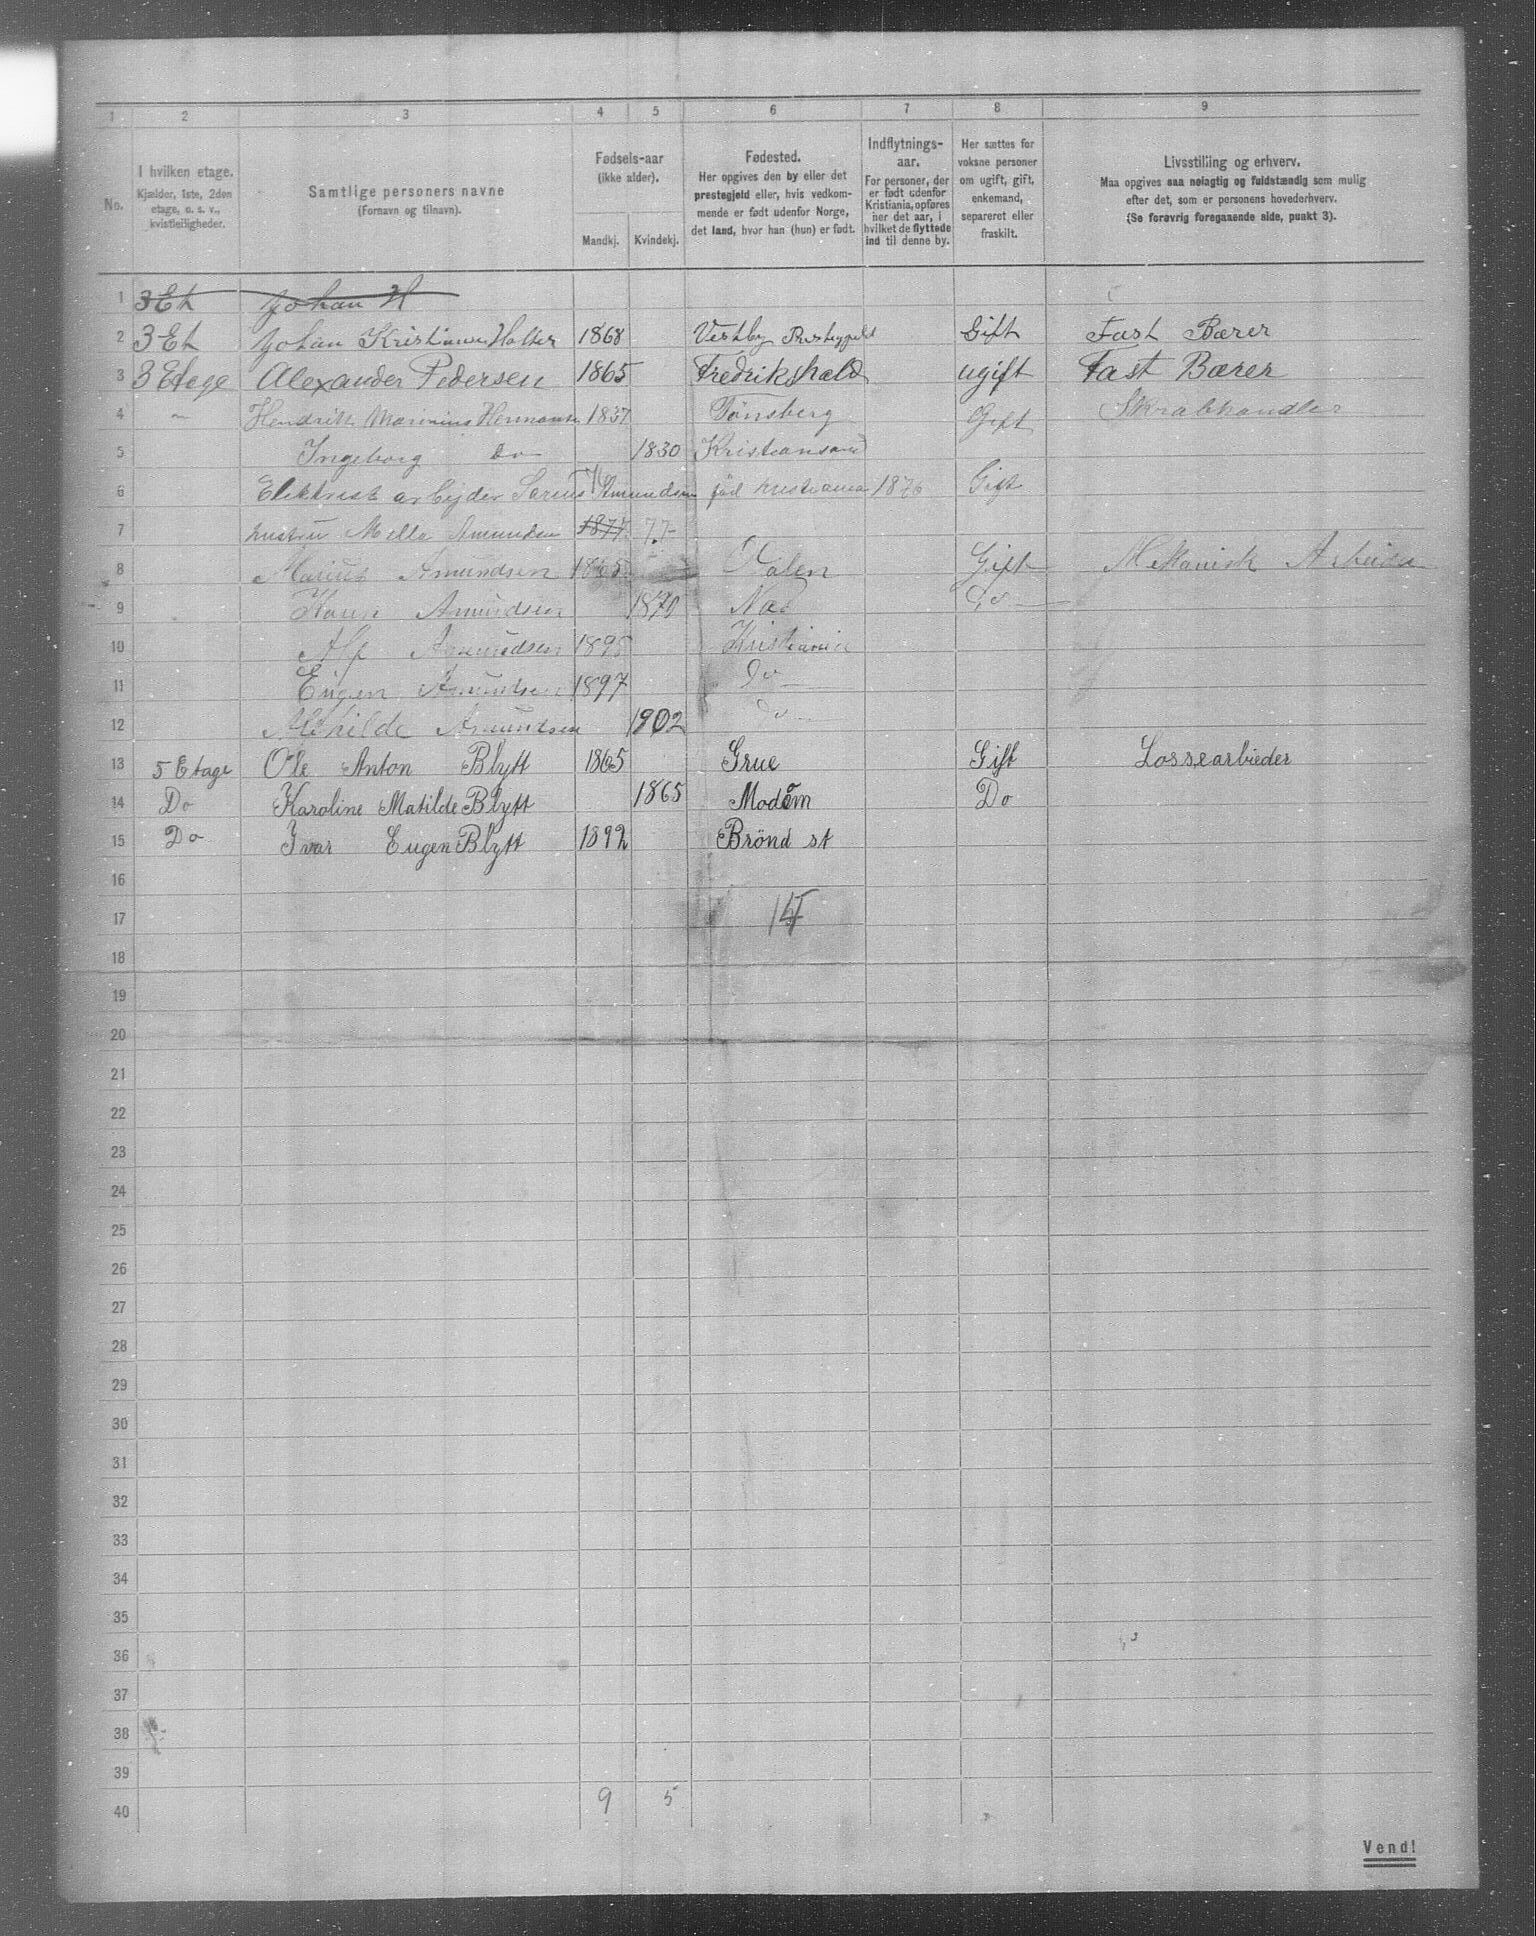 1 2 3 4 5 6 7 8 9
No.
I hvilken etage.
Kjælder, 1ste, 2den
etage, o. s. v.,
kvistleiligheder.
Samtlige personers navne
(Fornavn og tilnavn).
Fødsels-aar
(ikke alder).
Mandkj. Kvindekj.
Fødested.
Her opgives den by eller det
prestegjeld eller, hvis vedkom-
mende er født udenfor Norge,
det land, hvor han (hun) er født.
Indflytnings-
aar.
For personer, der
er født udenfor
Kristiania, opføres
her det aar, i
hvilket de flyttede
ind til denne by.
Her sættes for
voksne personer
om ugift, gift,
enkemand,
separeret eller
fraskilt.
Livsstilling og erhverv.
Maa opgives saa nøiagtig og fuldstændig som mulig
efter det, som er personens hovederhverv.
(Se forøvrig foregaaende side, punkt 3).
1 3 Et Johan H
2 3 Et Johan Kristiansen Holter 1868 Vestby Gift Fast Bærer
3 3 Etage Alexander Pedersen 1865 Fredrikshald ugift Fast Bærer
4 " Hendrik Marinius Hermansen 1837 Tønsberg Gift Skrabhandler
5 Ingeborg Do 1830 Kristiansand
6 Elektrisk arbejder Amundsen fød kristiania 1876 Gift
7 hustru Amundsen 1877 77
8 Marius Amundsen 1865 Gift Mekanisk
9 Amundsen 1870 Næs Do
10 Alf Amundsen 1895 Kristiania
11 Eugen Amundsen 1897 Do
12 Amundsen 1902 Do
13 5 Etage Ole Anton Blytt 1865 Grue Gift Lossearbieder
14 Do Karoline Matilde Blytt 1865 Modum Do
15 Do Ivar Eugen Blytt 1892 Brönd st
16
17 14
18
19
20
21
22
23
24
25
26
27
28
29
30
31
32
33
34
35
36
37
38
39
40 9 5
Vend!